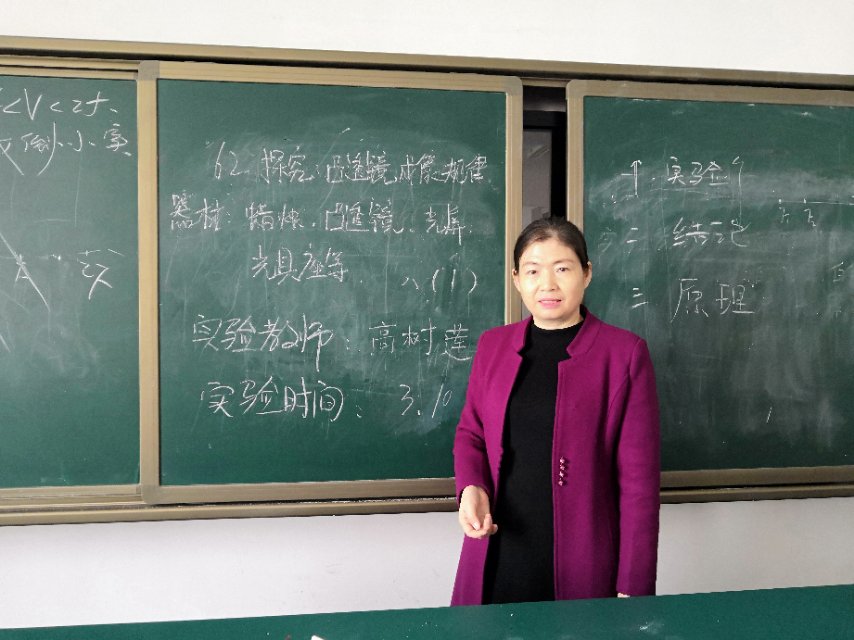 <V<2f、
倒.小.实
62. 探究：凸透镜成像规律
器材：蜡烛、凸透镜、光屏、
光具座等. 八(1)
实验教师：高树莲
实验时间：3.10
一. 实验
二. 结论
三 原理